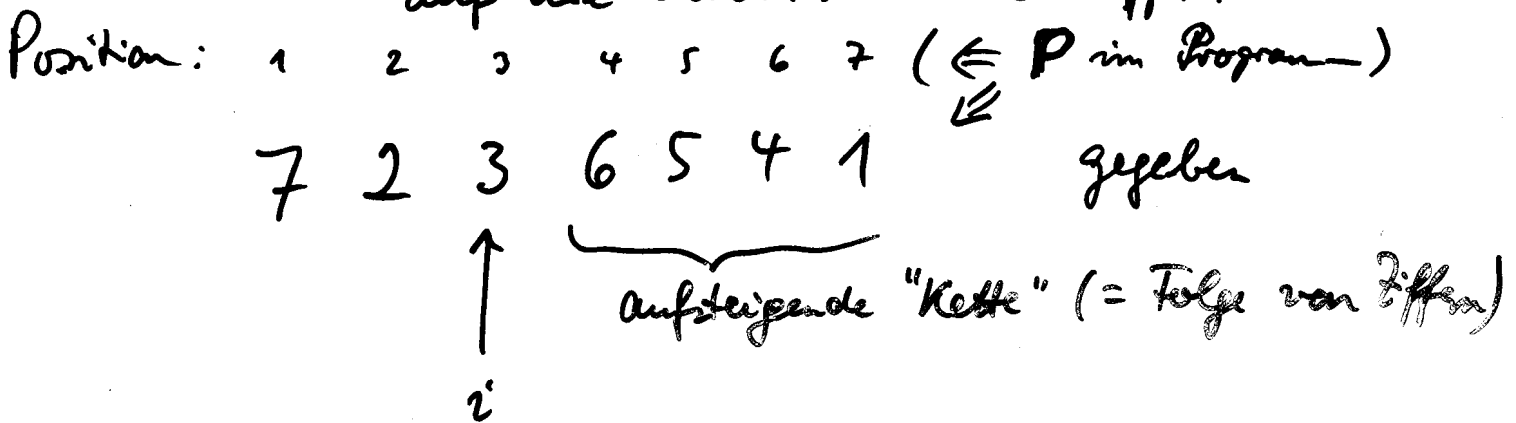 auf die
Position: 1 2 3 4 5 6 7 (⇐ P im Programm)
7 2 3 6 5 4 1 gegeben
aufsteigende "Kette" (= Folge von Ziffern)
i